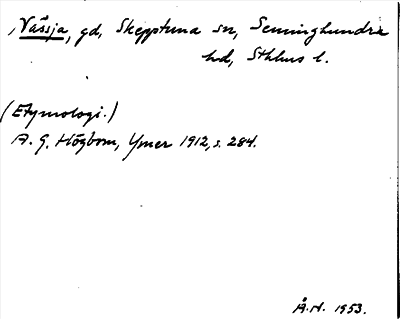 Vässja, gd, Skepptuna sn, Seminghundra
hd, Sthlms l.
(Etymologi.)
A. G. Högbom, Ymer 1912, s. 284.
Å.H. 1953.